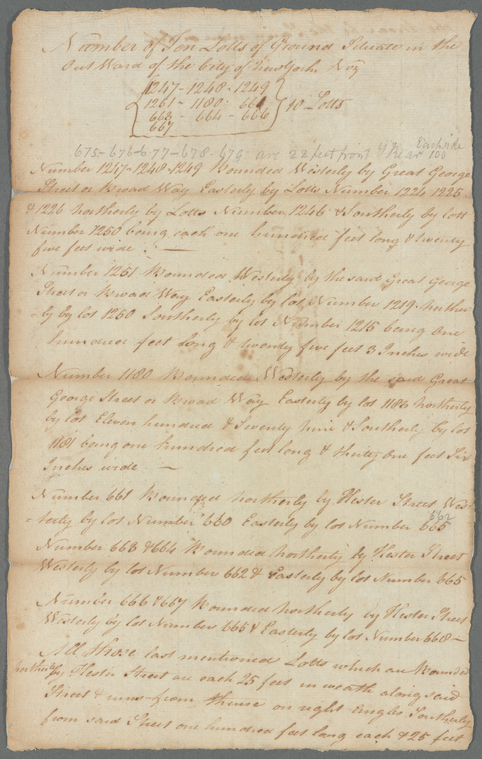 Number of Ten Lotts of Ground Situate in the
Out Ward of the City of New York Viz
1247 - 1248 - 1249
1251 - 1180 - 661
663 - 664 - 666
667
10 Lotts
675-676-677-678-679 are 22 feet front & Rear Each side 100
Number 1247-1248-1249 Bounded Westerly by Great George
Street or Broad Way Easterly by Lotts Number 1224 1225
& 1226 Northerly by Lotts Number 1246 & Southerly by lott
Number 1250 being each one hundred feet long & twenty
five feet wide —
Number 1251 Bounded Westerly by the said Great George
Street or Broad Way Easterly by lot Number 1219 Norther
-ly by lot 1250 Southerly by lot Number 1215 being One
hundred feet Long & twenty five feet 3 Inches wide
Number 1180 Bounded Westerly by the said Great
George Street or Broad Way Easterly by lot 1186 Northerly
by lot Eleven hundred & Seventy nine & Southerly by lot
1181 being one hundred feet long & thirty one feet Six
Inches wide —
Number 661 Bounded Northerly by Hester Street Wes-
-terly by lot Number 660 Easterly by lot Number 665
662
Number 663 & 664 Bounded Northerly by Hester Street
Westerly by lot Number 662 & Easterly by lot Number 665
Number 666 & 667 Bounded Northerly by Hester Street
Westerly by lot Number 665 & Easterly by lot Number 668 —
All those last mentioned Lotts which are Bounded
Northerly by Hester Street are each 25 feet in weath along said
Street & runs from thence on right Angles Southerly
from said Street one hundred feet long each & 25 feet